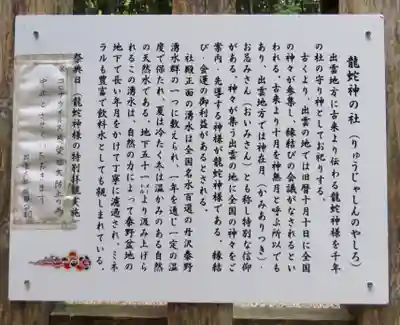 龍蛇神の社(りゅうじゃしんのやしろ)
出雲地方に古来より伝わる龍蛇神様を千年
の社の守り神としてお祀りする。
古くより、出雲の地では旧暦十月十日に全国
の神々が参集し、縁結びの会議がなされるとい
われる。古来より十月を神無月と呼ぶ所以でも
あり、出雲地方では神在月(かみありつき)、
お忌みさん(おいみさん)とも称し特別な信仰
がある。神々が集う出雲の地に全国の神々をご
案内・先導する神様が龍蛇神様である。縁結
び・金運の御利益があるとされる。
社殿正面の湧水は全国名水百選の丹沢秦野
湧水群の一つに数えられ、一年を通じ一定の温
度で保たれ、夏は冷たく冬は温かみのある自然
の天然水である。地下五十㍍より汲み上げら
れるこの湧水は、自然の力によって秦野盆地の
地下で長い年月をかけて丁寧に濾過され、ミネ
ラルも豊富で飲料水としても親しまれている。
祭典日(龍蛇神様の特別拝観実施)
※コロナウイルス感染拡大防止の為
中止とさせていただきます